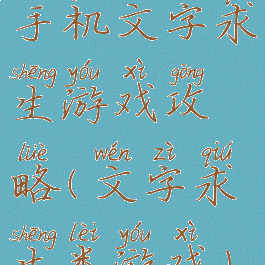 手机文字求
shēng yóu xì gōng
生游戏攻
lüè wén zì qiú
略(文字求
shēng lèi yóu xì
生类游戏)